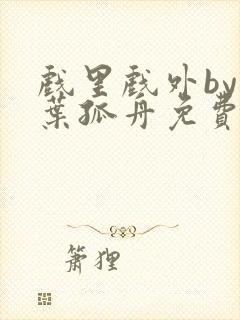 戲里戲外by
葉孤舟免費
簫狸